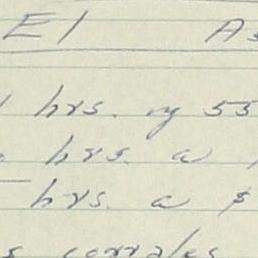 El As
hrs. cy 55
hrs. a
hrs. a $
corrales